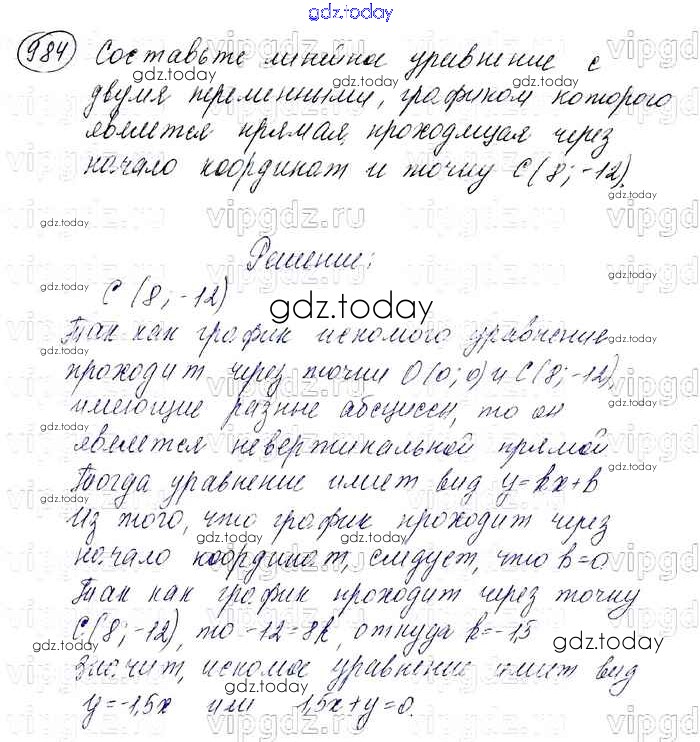 gdz.today
984 Составьте линейное уравнение с
двумя переменными, графиком которого
является прямая, проходящая через
начало координат и точку C(8;-12).
Решение:
C(8;-12)
gdz.today
Так как график искомого уравнения
проходит через точки O(0;0) и C(8;-12),
имеющие разные абсциссы, то он
является невертикальной прямой
Тогда уравнение имеет вид y=kx+b
Из того, что график проходит через
начало координат, следует, что b=0
Так как график проходит через точку
C(8;-12), то -12=8k, откуда k=-1,5
Значит, искомое уравнение имеет вид
y=-1,5x или 1,5x+y=0.